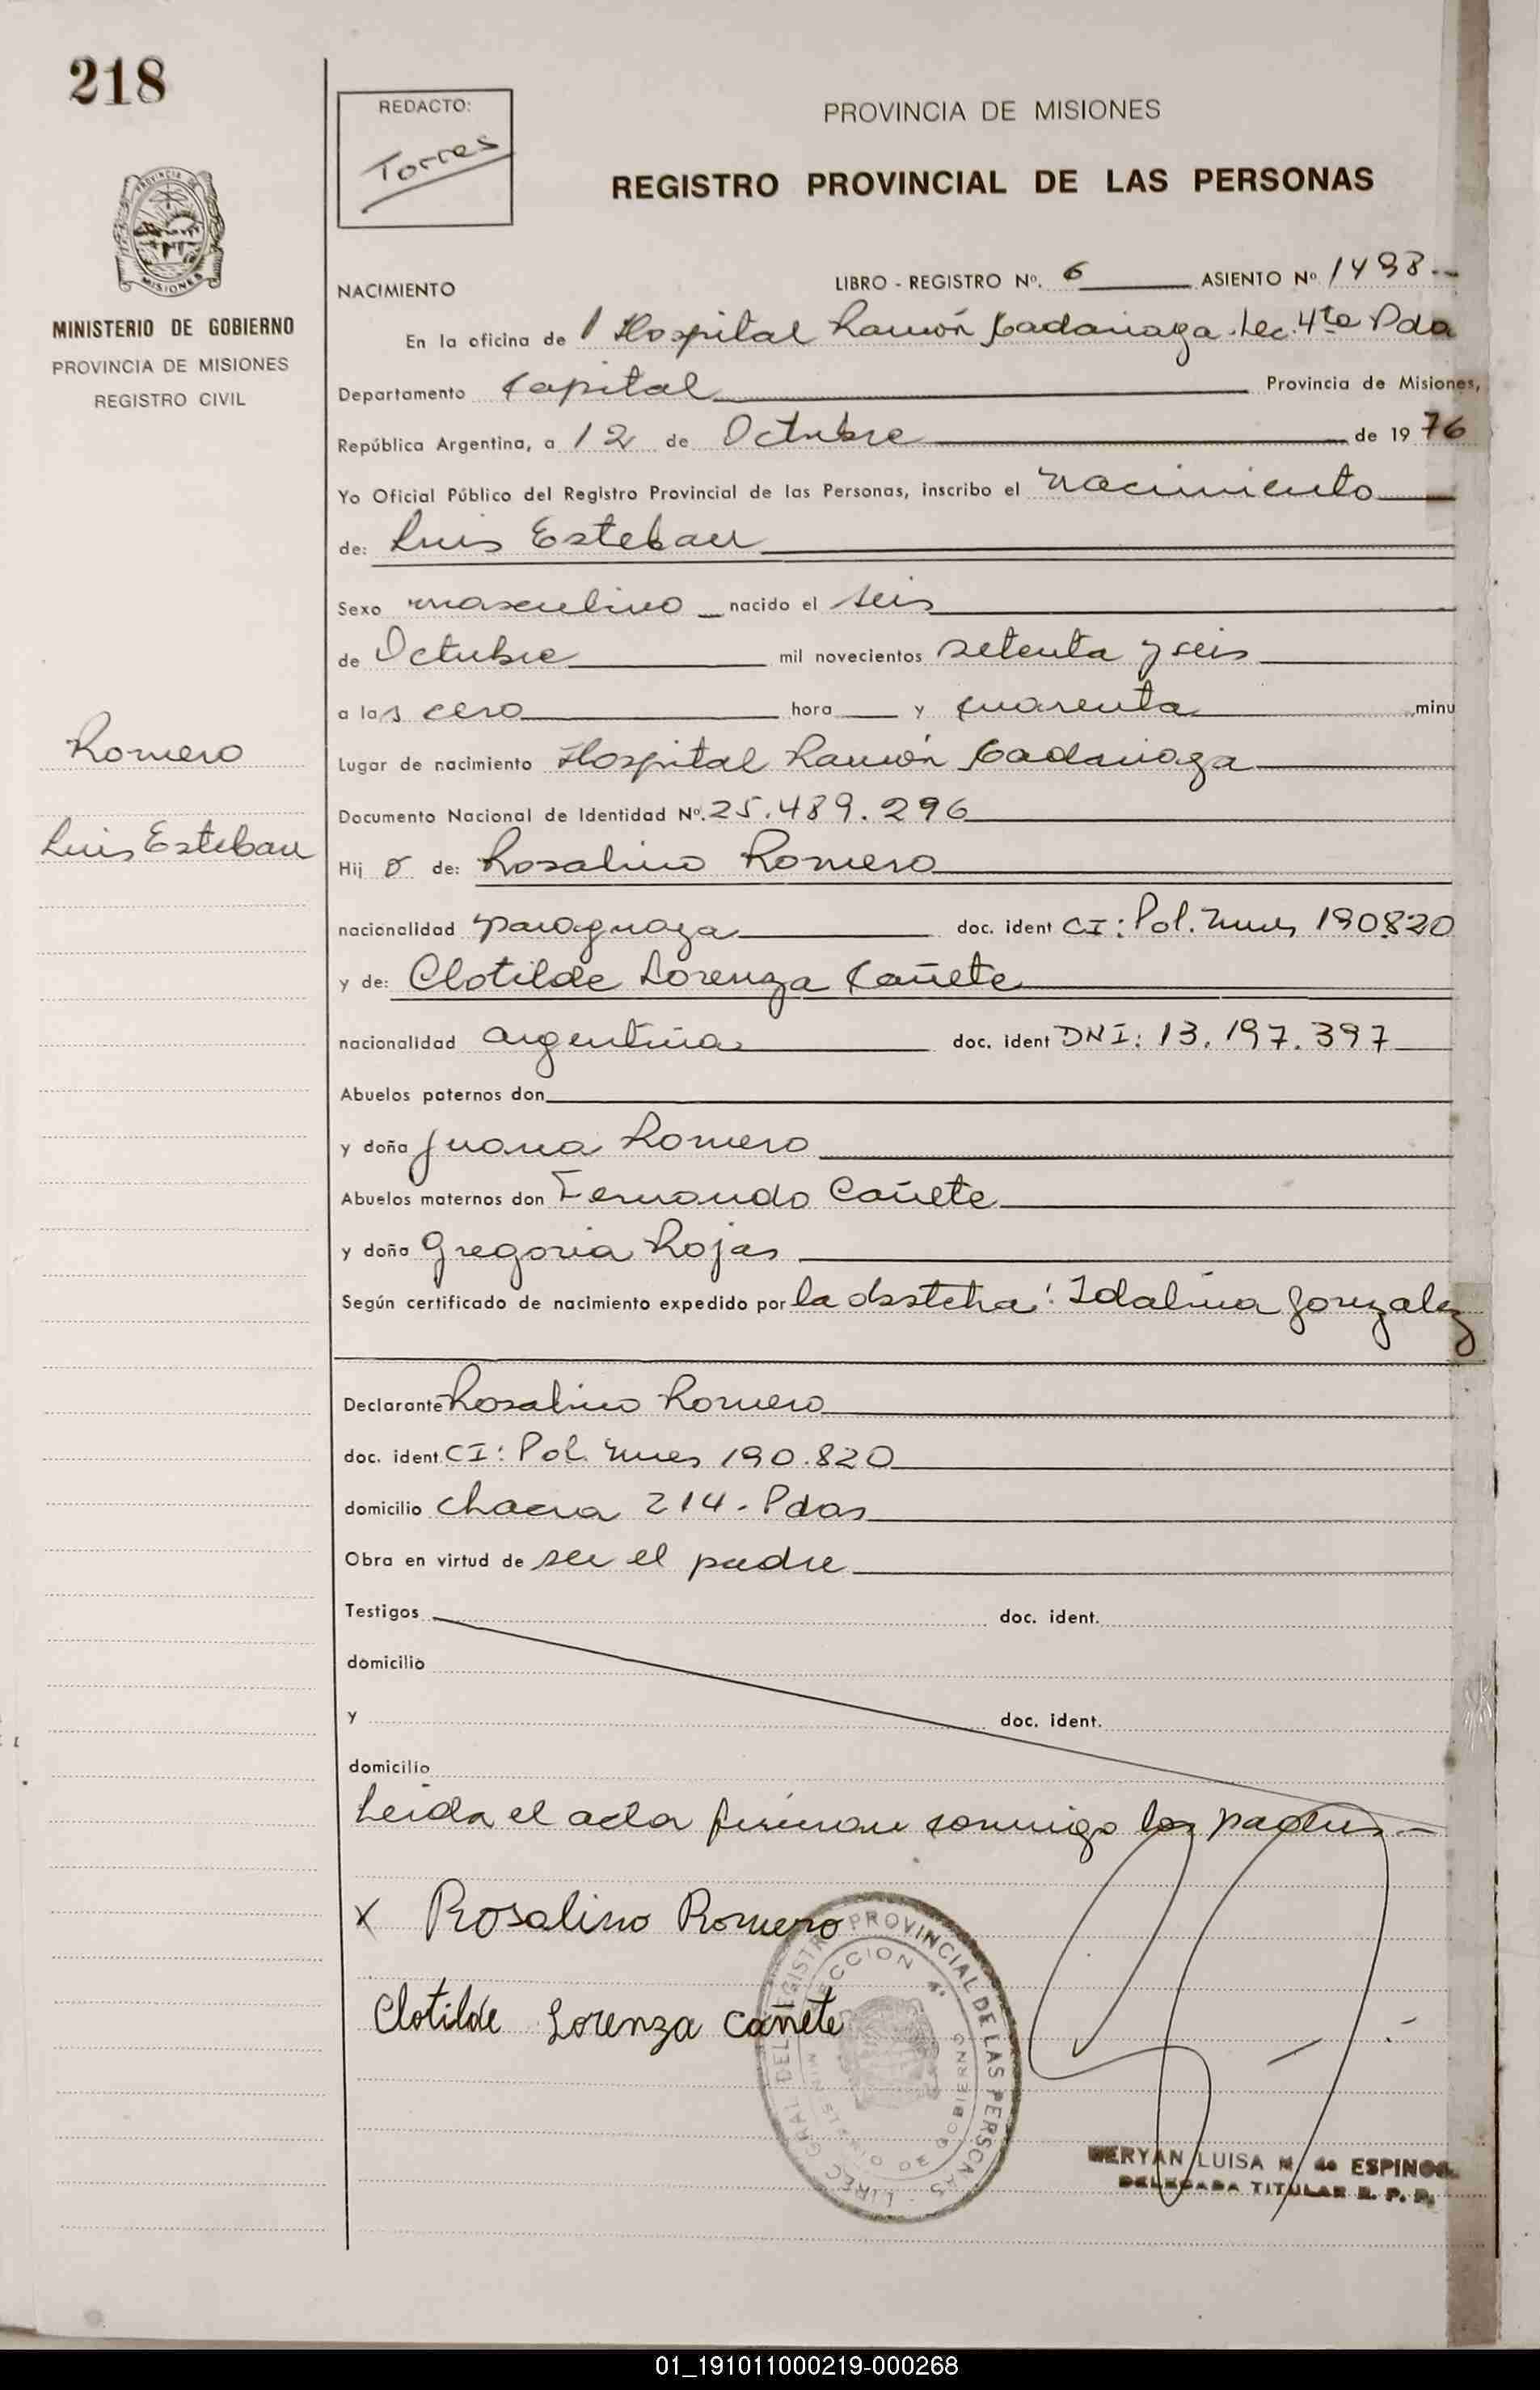 218
REDACTO:
Torres
PROVINCIA DE MISIONES
REGISTRO PROVINCIAL DE LAS PERSONAS
PROVINCIA DE
MISIONES
MINISTERIO DE GOBIERNO
PROVINCIA DE MISIONES
REGISTRO CIVIL
NACIMIENTO
LIBRO - REGISTRO Nº. 6 ASIENTO Nº 1498
En la oficina de Hospital Ramón Madariaga. Sec. 4ta Pda
Departamento Capital Provincia de Misiones,
República Argentina, a 12 de Octubre de 1976
Yo Oficial Público del Registro Provincial de las Personas, inscribo el nacimiento
de: Luis Esteban
Sexo masculino nacido el seis
de Octubre mil novecientos setenta y seis
a las cero hora y cuarenta minu
Romero
Lugar de nacimiento Hospital Ramón Madariaga
Documento Nacional de Identidad Nº. 25.489.296
Luis Esteban
Hij o de: Rosalino Romero
nacionalidad paraguaya doc. ident CI: Pol. Mnes 190820
y de: Clotilde Lorenza Cañete
nacionalidad argentina doc. ident DNI: 13.197.397
Abuelos paternos don
y doña Juana Romero
Abuelos maternos don Fernando Cañete
y doña Gregoria Rojas
Según certificado de nacimiento expedido por la obstetra: Idalina Gonzalez
Declarante Rosalino Romero
doc. ident. CI: Pol. Mnes 190.820
domicilio chacra 214 - Pdas
Obra en virtud de ser el padre
Testigos doc. ident.
domicilio
y doc. ident.
domicilio
Leida el acta firman conmigo los padres.-
X Rosalino Romero
Clotilde Lorenza Cañete
GRAL DEL REGISTRO PROVINCIAL DE LAS PERSONAS
SECCION 4ª
MINISTERIO DE GOBIERNO
LUISA M. de ESPINOSA
DELEGADA TITULAR R. P. P.
01_191011000219-000268